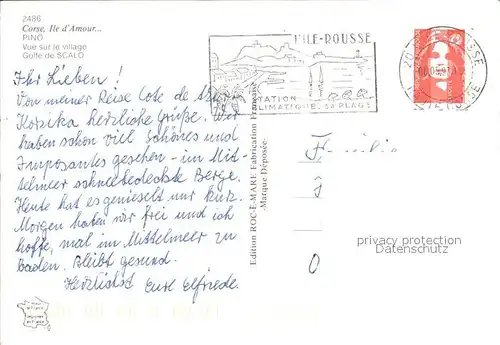 2486
Corse, Ile d'Amour...
PINO
Vue sur le village
Golfe de SCALO
Ihr Lieben!
Von meiner Reise Cote de Azur
Korsika herzliche Grüße. Wir
haben schon viel Schönes und
Imposantes gesehen - im Mit-
telmeer schneebedeckte Berge.
Heute hat es genieselt nur kurz.
Morgen haben wir frei und ich
hoffe, mal im Mittelmeer zu
baden. Bleibt gesund.
Herzlichst Eure Elfriede.
Edition ROC-E-MARE Fabrication Française
-Marque Déposée-
L'ILE-ROUSSE
STATION
CLIMATIQUE. SA PLAGE
Familie
privacy protection
Datenschutz